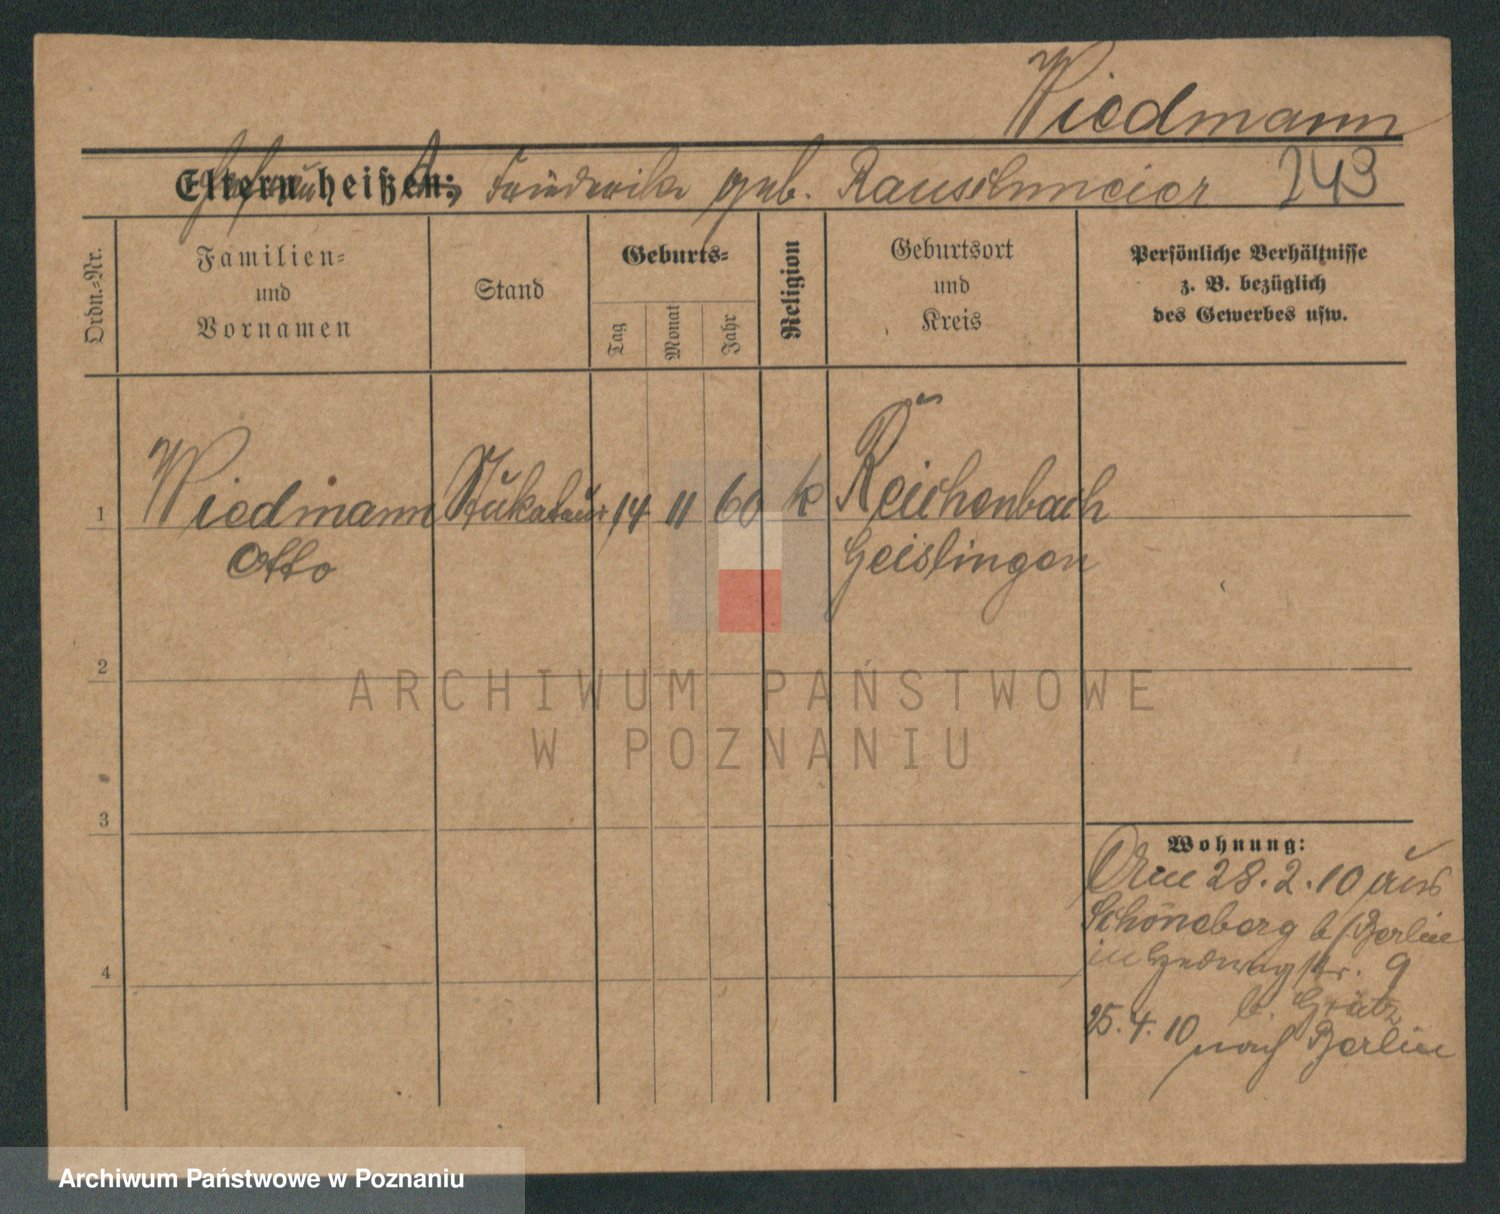 Wiedmann
Eltern heißen: Friederike geb. Rauschmeier 243
Ordn.-Nr.
Familien-
und
Vornamen
Stand
Geburts-
Tag
Monat
Jahr
Religion
Geburtsort
und
Kreis
Persönliche Verhältnisse
z. B. bezüglich
des Gewerbes usw.
1 Wiedmann Stukateur 14 11 60 k Reichenbach
Otto Geislingen
2
ARCHIWUM PAŃSTWOWE
W POZNANIU
3
Wohnung:
Am 28.2.10 aus
Schöneberg b/Berlin
in Hedwigstr. 9
4
b. Grätz
25.4.10 nach Berlin
Archiwum Państwowe w Poznaniu